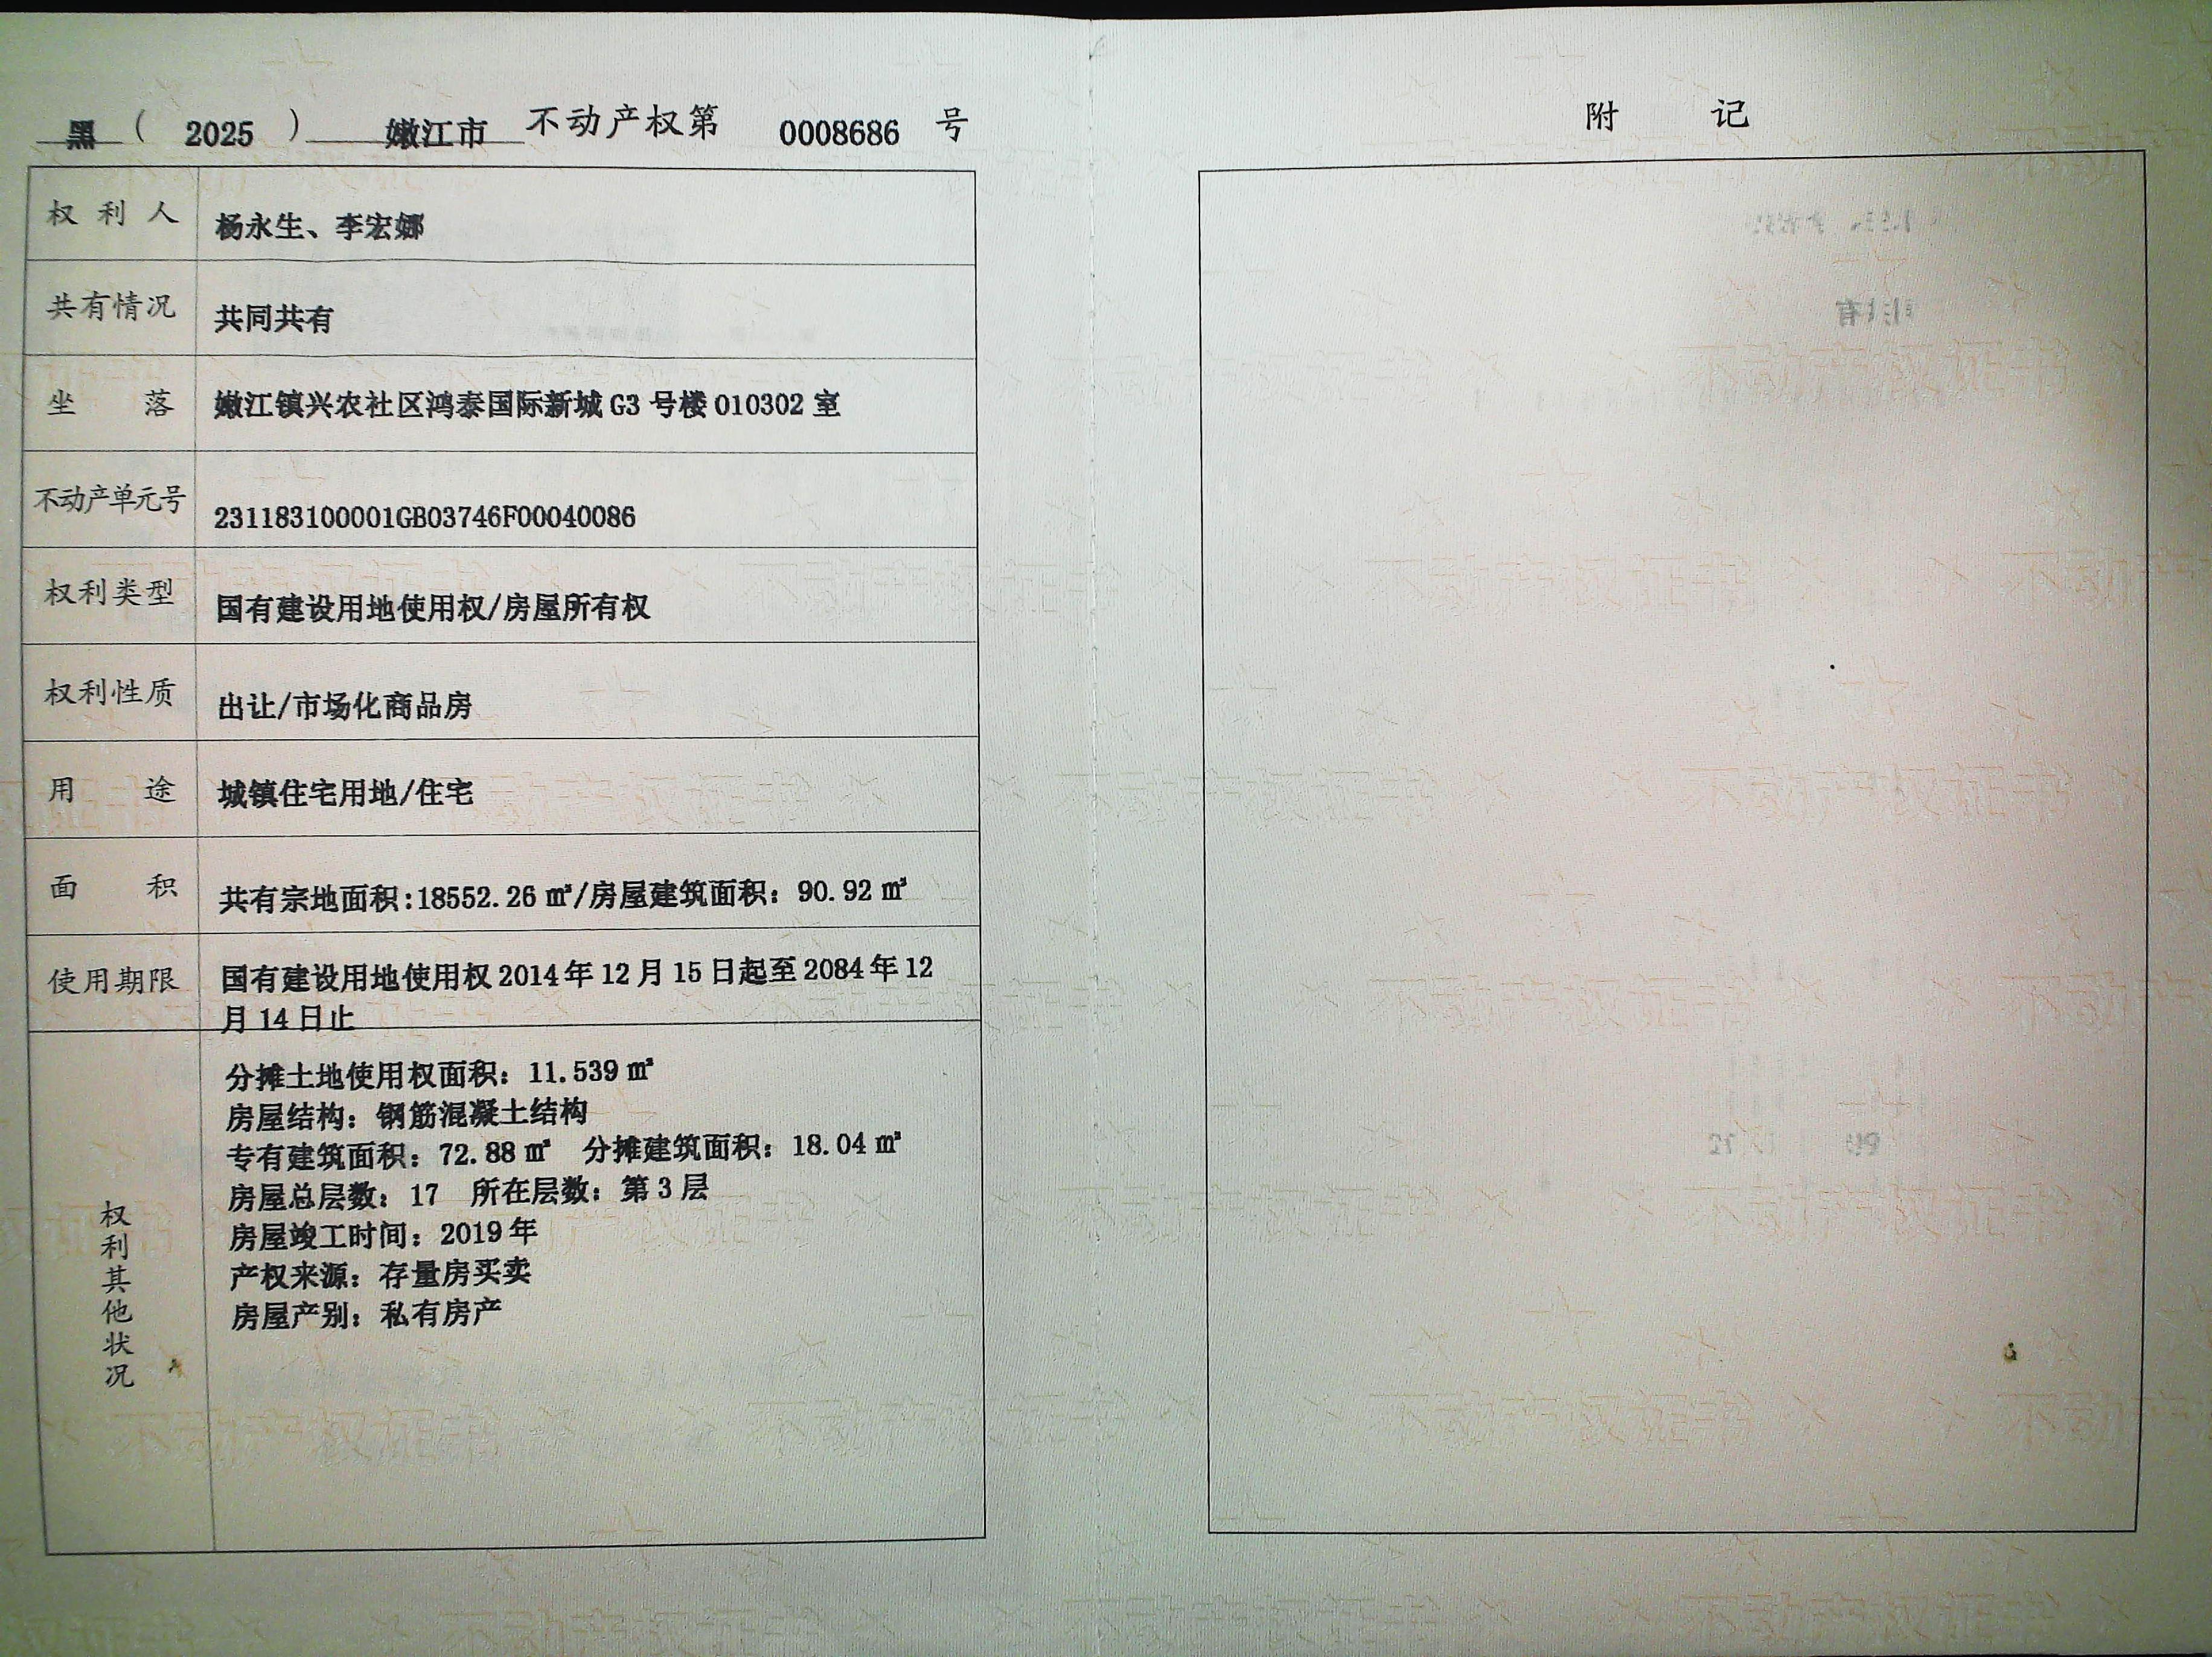 黑（2025）嫩江市不动产权第0008686号
权利人 杨永生、李宏娜
共有情况 共同共有
坐落 嫩江镇兴农社区鸿泰国际新城G3号楼010302室
不动产单元号 231183100001GB03746F00040086
权利类型 国有建设用地使用权/房屋所有权
权利性质 出让/市场化商品房
用途 城镇住宅用地/住宅
面积 共有宗地面积:18552.26㎡/房屋建筑面积：90.92㎡
使用期限 国有建设用地使用权2014年12月15日起至2084年12
月14日止
权利其他状况
分摊土地使用权面积：11.539㎡
房屋结构：钢筋混凝土结构
专有建筑面积：72.88㎡ 分摊建筑面积：18.04㎡
房屋总层数：17 所在层数：第3层
房屋竣工时间：2019年
产权来源：存量房买卖
房屋产别：私有房产
附记